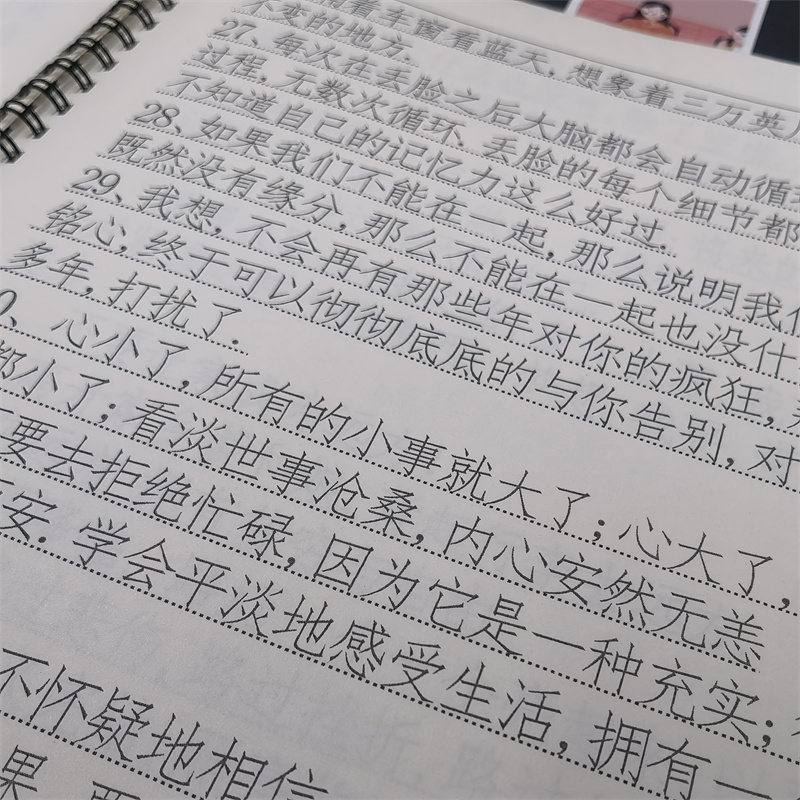 看车窗看蓝天,想象着三万英
不变的地方.
27、每次在丢脸之后大脑都会自动循环
过程,无数次循环、丢脸的每个细节都
不知道自己的记忆力这么好过.
28、如果我们不能在一起,那么说明我们
既然没有缘分,那么不能在一起也没什
29、我想,不会再有那些年对你的疯狂,
铭心,终于可以彻彻底底的与你告别,对
多年,打扰了.
0、心小了,所有的小事就大了;心大了,
都小了;看淡世事沧桑,内心安然无恙
要去拒绝忙碌,因为它是一种充实;
安.学会平淡地感受生活,拥有一
不怀疑地相信
果